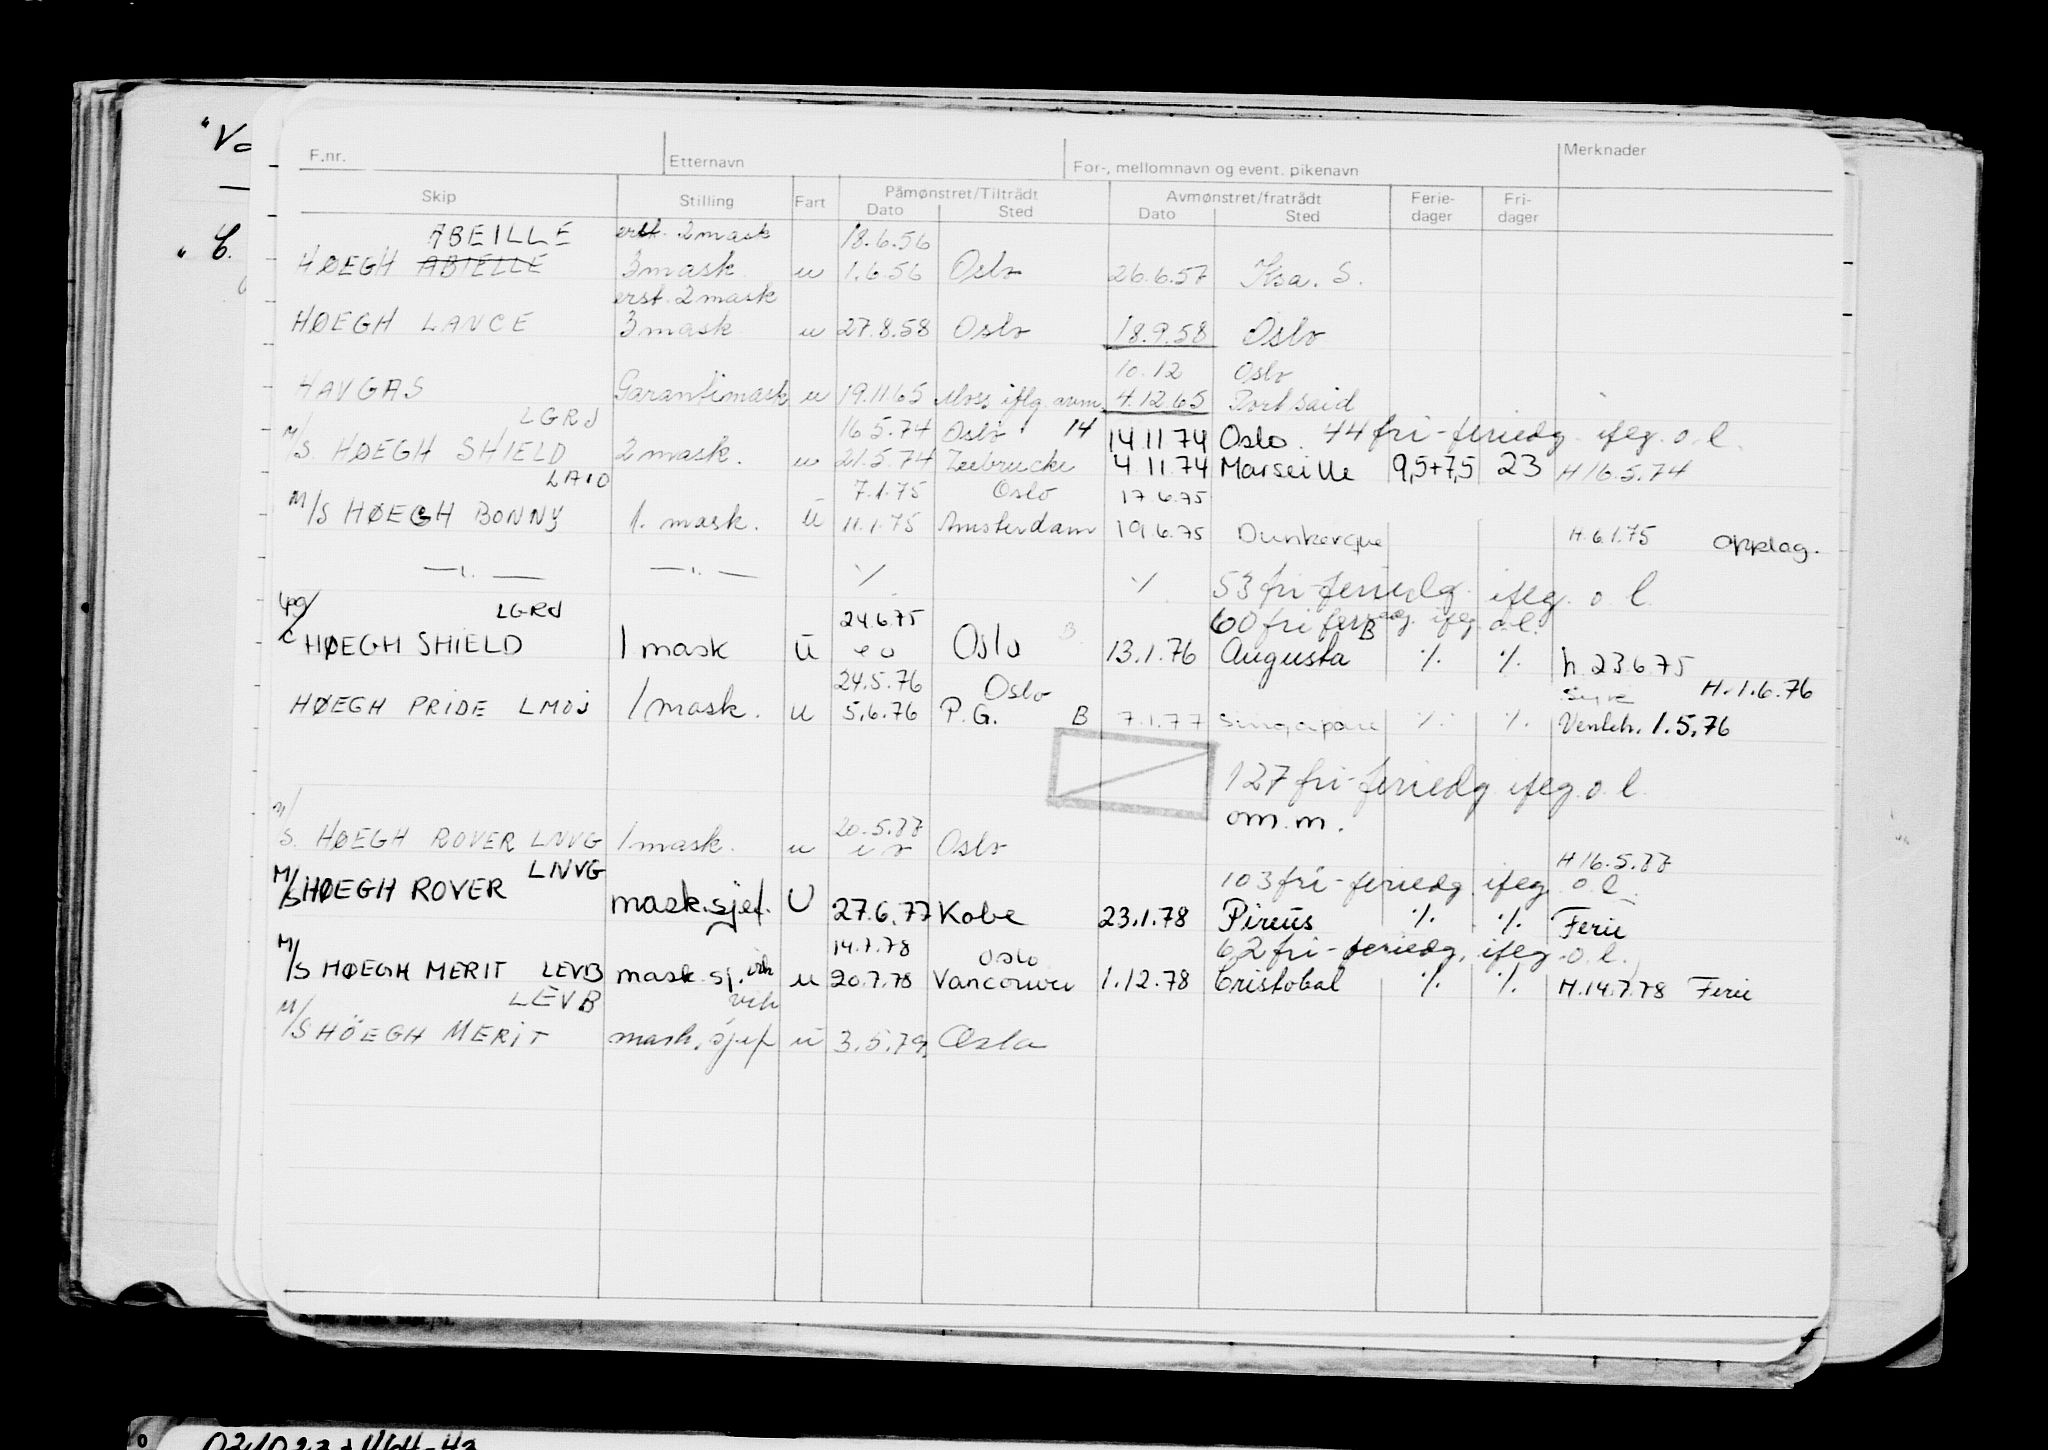 F.nr. Etternavn For-, mellomnavn og event. pikenavn Merknader
Skip Stilling Fart Påmønstret/Tiltrådt Avmønstret/fratrådt Ferie- Fri-
Dato Sted Dato Sted dager dager
ABEILLE erst. 2 mask 18.6.56
HØEGH ABIELLE 3 mask. u 1.6.56 Oslo 26.6.57 Ksa. S.
erst. 2 mask
HØEGH LANCE 3 mask u 27.8.58 Oslo 18.9.58 Oslo
10.12 Oslo
HAVGAS Garantimask u 19.11.65 Moss iflg. avm. 4.12.65 Port Said
LGRJ 16.5.74 Oslo 14 14.11.74 Oslo. 44 fri-feriedg. iflg. o. l.
M/S HØEGH SHIELD 2 mask. u 21.5.74 Zeebrucke 4.11.74 Marseille 9,5+7,5 23 H 16.5.74
LAIO 7.1.75 Oslo 17.6.75
M/S HØEGH BONNY 1. mask. u 11.1.75 Amsterdam 19.6.75 Dunkerque H. 6.1.75 opplag.
—ı.— —ı.— ./. ./. 53 fri-feriedg. iflg. o. l.
LGRJ 24.6.75 60 fri feriedg. iflg. o. l.
Lpg/c HØEGH SHIELD 1 mask u e o Oslo B. 13.1.76 Augusta B ./. ./. h. 23.6.75
24.5.76 Oslo Syk H. 1.6.76
HØEGH PRIDE LMOJ 1 mask. u 5.6.76 P.G. B 7.1.77 Singapore ./. ./. Venteh. 1.5.76
127 fri-feriedg iflg. o. l.
om. m.
M/S. HØEGH ROVER LNVG 1 mask. u 20.5.77 Oslo
H 16.5.77
LNVG 103 fri-feriedg. iflg. o. l.
M/S HØEGH ROVER mask.sjef. U 27.6.77 Kobe 23.1.78 Pireus ./. ./. Ferie
14.7.78 Oslo 62 fri-feriedg. iflg. o. l.
M/S HØEGH MERIT LEVB mask.sj. vik u 20.7.78 Vancouver 1.12.78 Cristobal ./. ./. H.14.7.78 Ferie
LEVB vik
M/S HÖEGH MERIT mask. sjef u 3.5.79. Oslo